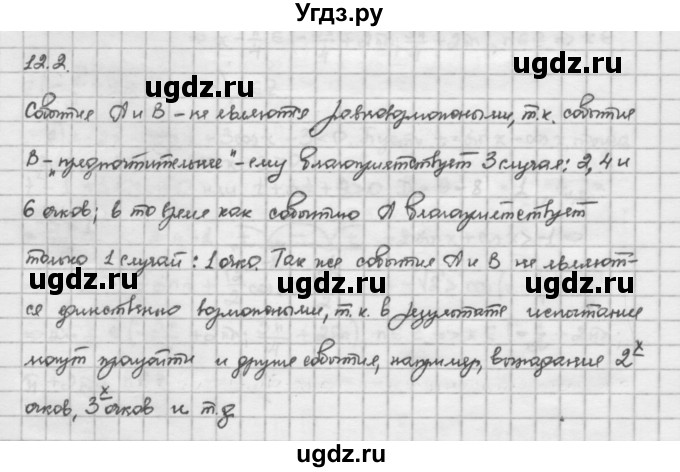 Угдз.ру
12.2.
ugdz.ru ugdz.ru
События А и В – не являются равновозможными, т.к. событие
В – "предпочтительнее" – ему благоприятствует 3 случая: 2, 4 и
ugdz.ru
6 очков; в то время как событию А благоприятствует
только 1 случай: 1 очко. Так же события А и В не являют-
ugdz.ru ugdz.ru
ся единственно возможными, т.к. в результате испытание
могут произойти и другие события, например, выпадание 2х
очков, 3х очков и т.д.
ugdz.ru